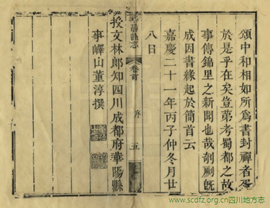 頌中和相如所為書封禪者死
於是乎在矣豈第考蜀都之故
事傳錦里之新聞也哉剞劂旣
成因書緣起於簡首云
嘉慶二十一年丙子仲冬月廿
八日
卷首
五
授文林郎知四川成都府華陽縣
事嶧山董淳撰
www.scdfz.org.cn四川地方志